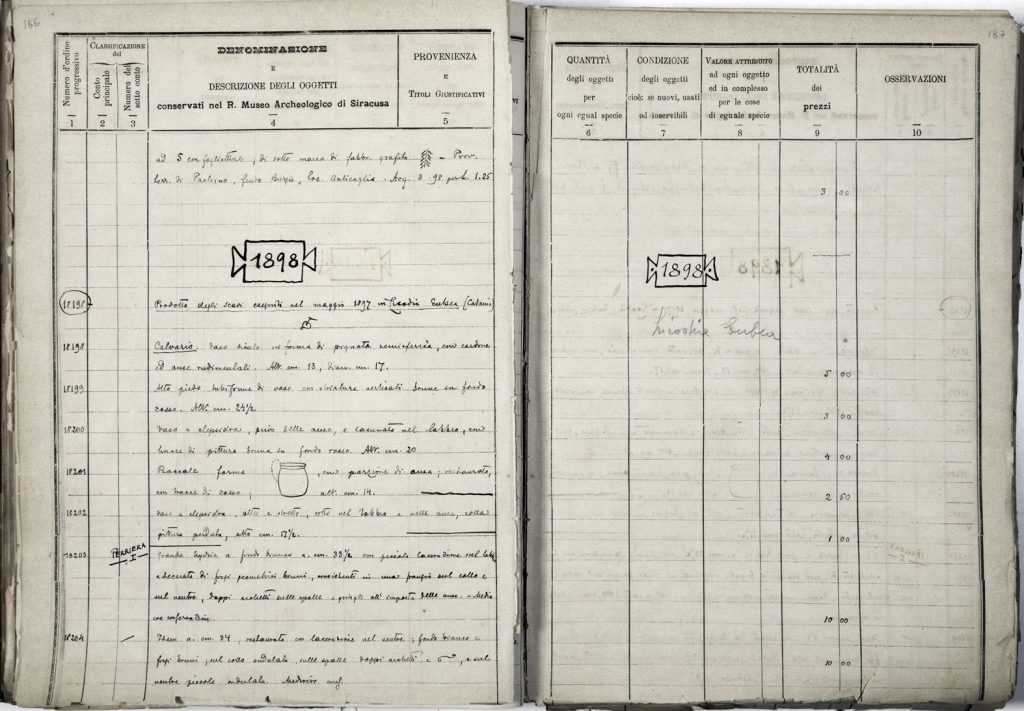 186
Numero d'ordine progressivo
CLASSIFICAZIONE del
Conto principale
Numero del sotto conto
DENOMINAZIONE
E
DESCRIZIONE DEGLI OGGETTI
conservati nel R. Museo Archeologico di Siracusa
PROVENIENZA
E
TITOLI GIUSTIFICATIVI
1 2 3 4 5
ad 5 con fogliettine, di sotto marca di fabbr. graffita — Prov.
terr. di Pachino, feudo Burgio, loc. Anticaglia. Acq. 3. 98 per L. 1.25
1898
18198 Prodotto degli scavi eseguiti nel maggio 1897 in Licodia Eubea (Catania)
18198 Calvario. Vaso siculo in forma di pignatta semisferica, con cordone
ed anse rudimentali. Alt. cm. 13, diam. cm. 17.
18199 Alto piede tubiforme di vaso, con striature verticali brune su fondo
rosso. Alt. cm. 24½
18200 Vaso a clepsidra, privo delle anse, e lacunato nel labbro, con
tracce di pittura bruna su fondo rosso. Alt. cm. 20
18201 Boccale forma , con porzione di ansa; restaurato,
con tracce di rosso; alt. cm. 14.
18202 Vaso a clepsidra, alto e stretto, rotto nel labbro e nelle anse, colla
pittura perduta, alto cm. 17½.
18203 PERRIERA I Grande hydria a fondo bianco a. cm. 33½ con piccole lacerazione sul labb.
e decorata di fregi geometrici bruni, consistenti in una sul collo e
sul ventre, doppi archetti sulle spalle e all'imposta delle anse. Medio
cre conservazione
18204 — Idem a. cm 34 restaurata con lacerazione nel ventre; fondo bianco e
fregi bruni; sul collo ondulata, sulle spalle doppi archetti e , e sul
ventre piccole ondulate. Mediocre
187
QUANTITÀ
degli oggetti
per
ogni egual specie
CONDIZIONE
degli oggetti
cioè: se nuovi, usati
od inservibili
VALORE ATTRIBUITO
ad ogni oggetto
ed in complesso
per le cose
di eguale specie
TOTALITÀ
dei
prezzi
OSSERVAZIONI
6 7 8 9 10
3 00
1898
Licodia Eubea
5 00
3 00
4 00
2 50
1 00
10 00
10 00